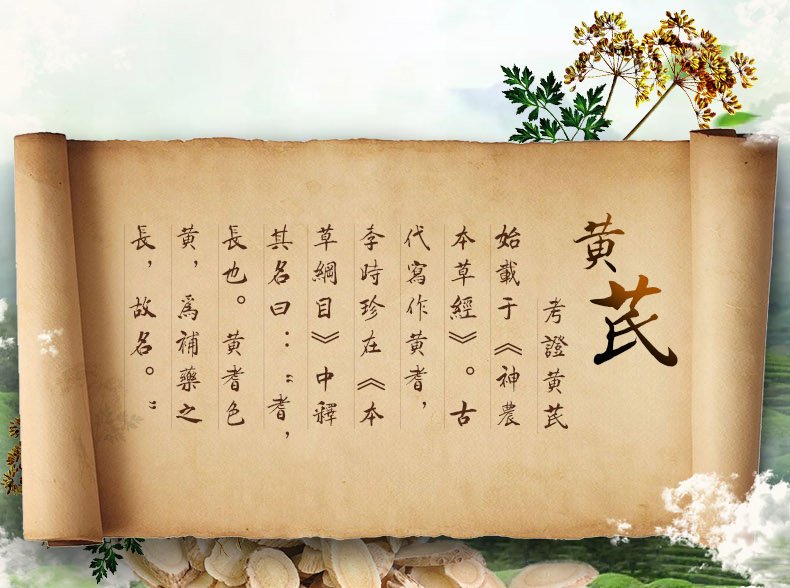 黄芪
考證黄芪
始載于《神農
本草經》。古
代寫作黄耆，
李時珍在《本
草綱目》中釋
其名曰：“耆，
長也。黄耆色
黄，爲補藥之
長，故名。”